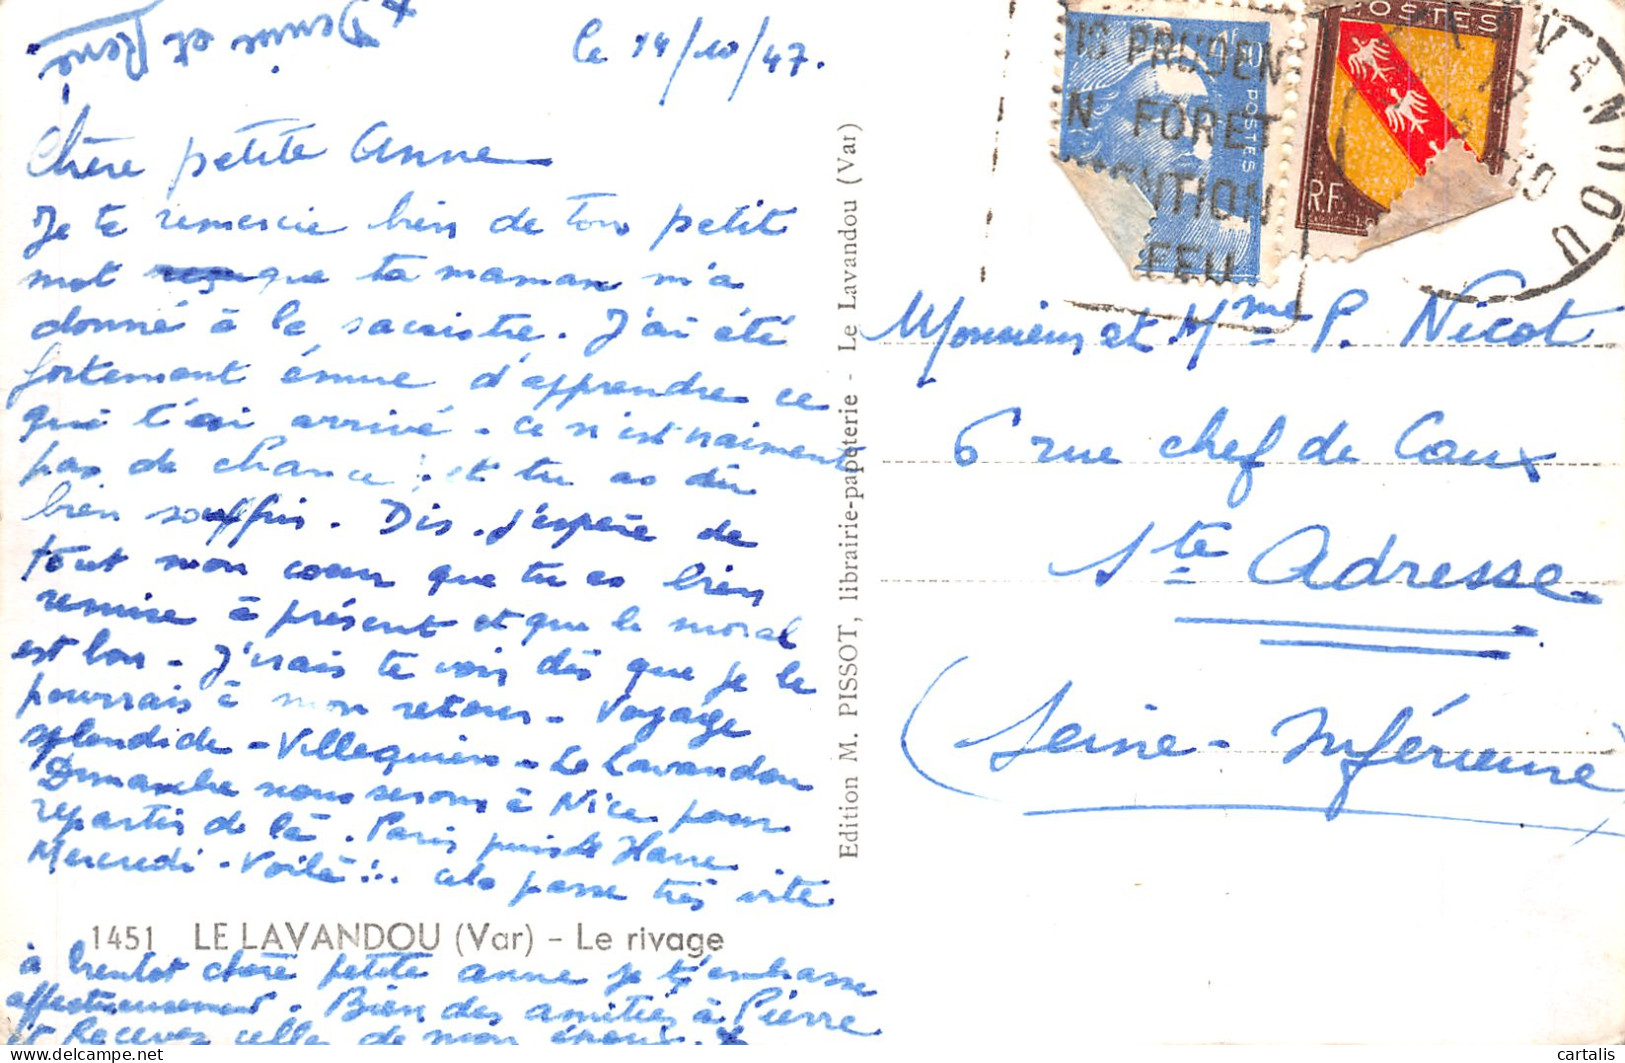 le 14/10/47.
Chère petite Anne
Je te remercie bien de ton petit
mot que ta maman m'a
donné à la sacristie. J'ai été
fortement émue d'apprendre ce
qui t'est arrivé - ce n'est vraiment
pas de chance ! et tu as dû
bien souffrir. Dis, j'espère de
tout mon cœur que tu es bien
remise à présent et que le moral
est bon - J'irais te voir dès que je le
pourrais à mon retour - Voyage
splendide - Villequier - Le Lavandou
Dimanche nous serons à Nice pour
repartir de là. Paris puis Le Havre
Mercredi - Voilà !.. cela passe très vite
1451 LE LAVANDOU (Var) - Le rivage
à bientôt chère petite anne je t'embrasse
affectueusement. Bien des amitiés à Pierre
et Recevez celles de mon époux. x
x Denise et René
Edition M. PISSOT, librairie-papeterie - Le Lavandou (Var)
PRUDEN
N FORET
ENTION
FEU
POSTES
POSTES
R.F.
LAVANDOU
Monsieur et Mme P. Nicot
6 rue chef de Caux
Ste Adresse
(Seine-Inférieure)
cartalis